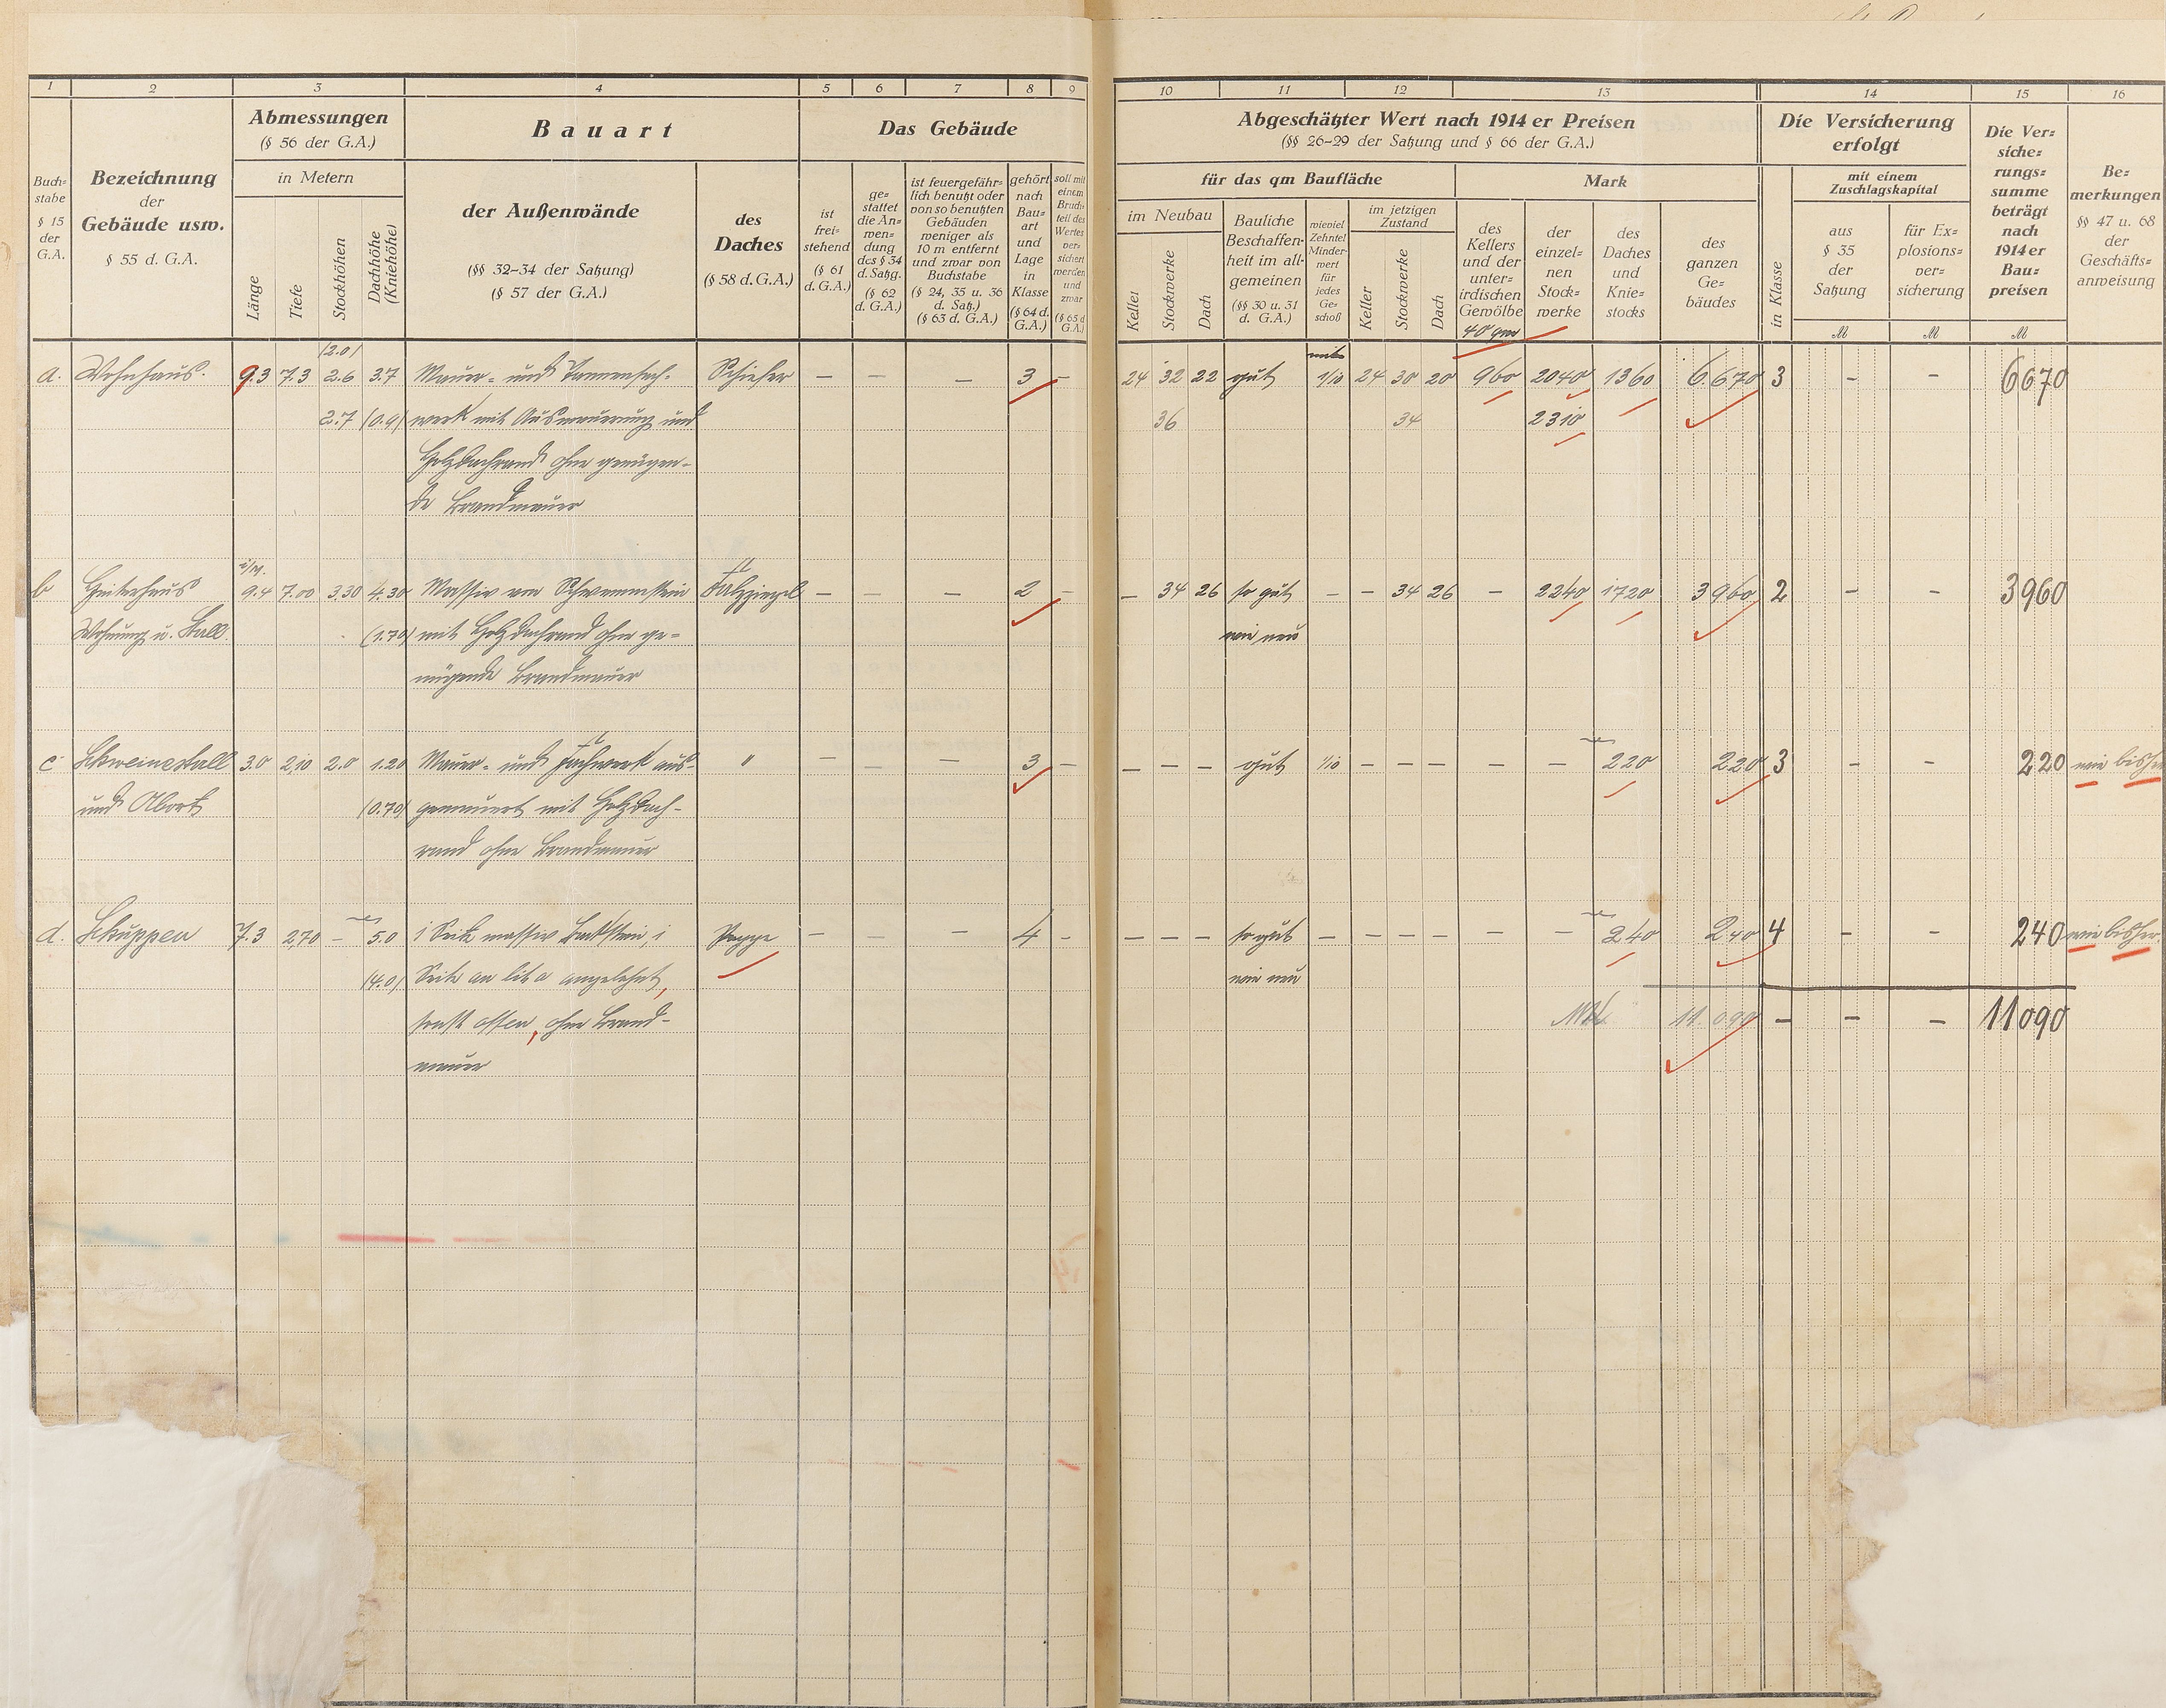 1 2 3 4 5 6 7 8 9 10 11 12 13 14 15 16
Buch=
stabe
§ 15
der
G.A.
Bezeichnung
der
Gebäude usw.
§ 55 d. G.A.
Abmessungen
(§ 56 der G.A.)
in Metern
Länge
Tiefe
Stockhöhen
Dachhöhe
(Kniehöhe)
Bauart
der Außenwände
(§§ 32–34 der Satzung)
(§ 57 der G.A.)
des
Daches
(§ 58 d.G.A.)
Das Gebäude
ist
frei=
stehend
(§ 61
d. G.A.)
ge=
stattet
die An=
wen=
dung
des § 34
d. Satzg.
(§ 62
d. G.A.)
ist feuergefähr=
lich benutzt oder
von so benutzten
Gebäuden
weniger als
10 m entfernt
und zwar von
Buchstabe
(§ 24, 35 u. 36
d. Satz.)
(§ 63 d. G.A.)
gehört
nach
Bau=
art
und
Lage
in
Klasse
(§ 64 d.
G.A.)
soll mit
einem
Bruch=
teil des
Wertes
ver=
sichert
werden
und
zwar
(§ 65 d.
G.A.)
Abgeschätzter Wert nach 1914 er Preisen
(§§ 26–29 der Satzung und § 66 der G.A.)
für das qm Baufläche
im Neubau
Keller
Stockwerke
Dach
Bauliche
Beschaffen=
heit im all=
gemeinen
(§§ 30 u. 31
d. G.A.)
wieviel
Zehntel
Minder=
wert
für
jedes
Ge=
schoß
im jetzigen
Zustand
Keller
Stockwerke
Dach
Mark
des
Kellers
und der
unter=
irdischen
Gewölbe
40 qm
der
einzel=
nen
Stock=
werke
des
Daches
und
Knie=
stocks
des
ganzen
Ge=
bäudes
Die Versicherung
erfolgt
in Klasse
mit einem
Zuschlagskapital
aus
§ 35
der
Satzung
M
für Ex=
plosions=
ver=
sicherung
M
Die Ver=
siche=
rungs=
summe
beträgt
nach
1914 er
Bau=
preisen
M
Be=
merkungen
§§ 47 u. 68
der
Geschäfts=
anweisung
(2.0)
a. Wohnhaus. 9.3 7.3 2.6 3.7 Mauer= und Tannenfach= Schiefer – – – 3 – 24 32 22 gut 1/10 24 30 20 960 2040 1360 6.670 3 – – 6670
2.7 (0.9) werk mit Ausmauerung und 36 34 2310
Holzdachrand ohne genügen=
de Brandmauer
i/M.
b Hinterhaus 9.4 7.00 3.30 4.30 Massiv von Schwemmstein Falzziegel – – – 2 – – 34 26 so gut – – 34 26 – 2240 1720 3960 2 – – 3960
Wohnung u. Stall. (1.70) mit Holzdachrand ohne ge= wie neu
nügende Brandmauer
c Schweinestall 3.0 2,10 2.0 1.20 Mauer= und Fachwerk aus= " – – – 3 – – – – gut 1/10 – – – – – 220 220 3 – – 220 wie bisher
und Abort (0.70) gemauert mit Holzdach=
rand ohne Brandmauer
d. Schuppen 7.3 270 – 5.0 1 Seite massiv Backstein, 1 Pappe – – – 4 – – – – so gut – – – – – – 240 240 4 – – 240 wie bisher.
(4.0) Seite an lit a angelehnt, wie neu
sonst offen, ohne Brand= 11.090 – – – 11090
mauer